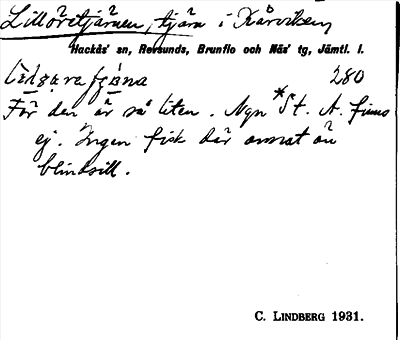 Lillöretjärnen, tjärn i Kårviken
Hackås' sn, Revsunds, Brunflo och Näs' tg, Jämtl. l.
280
För den är så liten. Ngn *St. A. finns
ej. Ingen fisk där annat än
blindsill.
C. LINDBERG 1931.